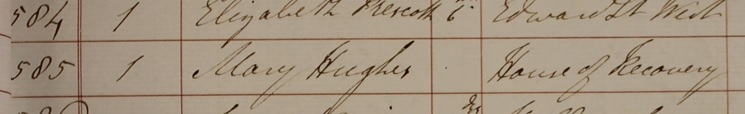 584 1 Elizabeth Prescott 6 Edward St West
585 1 Mary Hughes House of Recovery